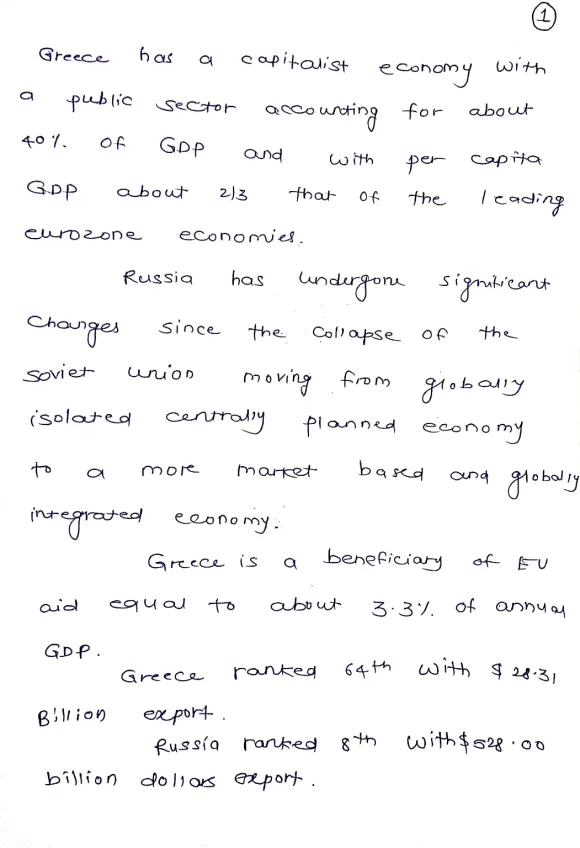 1
Greece has a capitalist economy with
a public sector accounting for about
40%. OF GDP and with per capita
GDP about 2/3 that of the leading
eurozone economies.
Russia has undergone significant
Changes since the Collapse of the
soviet union moving from globally
isolated centrally planned economy
to a more market based and globally
integrated economy.
Greece is a beneficiary of EU
aid equal to about 3.3%. of annual
GDP.
Greece ranked 64th with $ 28.31
Billion export.
Russia ranked 8th with $528.00
billion dollars export.